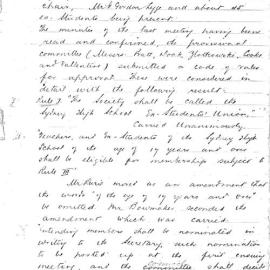 chair, Mr Gordon Lyge and about 20
ex-Students being present.
The minutes of the last meeting having been
read and confirmed, the provisional
committee (Messrs. Kotowski, Cooke
and Valentine) submitted a code of rules
for approval. These were considered in
detail with the following result:
Rule I The Society shall be called the
Sydney High School Ex-Students' Union.
Carried Unanimously.
Teachers, and Ex-Students of the Sydney High
School of the age of 17 years and over
shall be eligible for membership subject to
Rule III
Mr moved as an amendment that
the words "of the age of 17 years and over"
be omitted. Mr seconded the
amendment which was carried.
intending members shall be nominated in
writing to the Secretary, such nomination
to be posted up at the first ensuing
meeting, and the committee shall